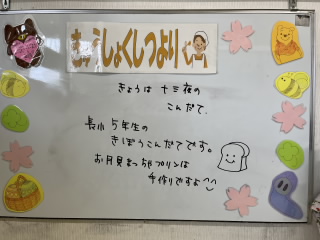 きゅうしょくしつより
きょうは 十三夜の
こんだて。
長小 5年生の
きぼうこんだてです。
お月見まっ茶プリンは
手作りですよ^^